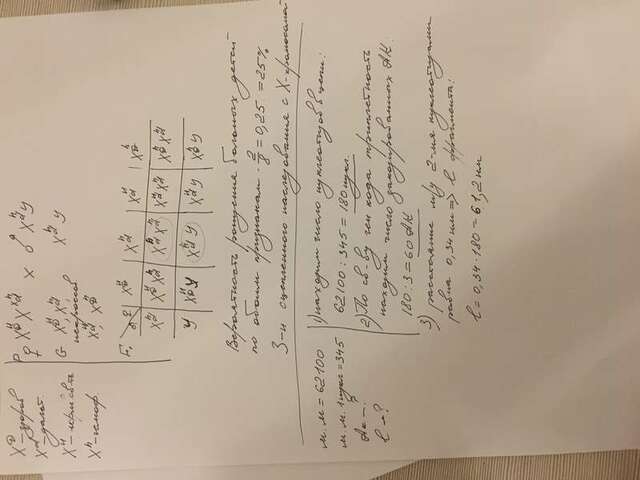 X^D - здоров
X^d - дальт.
X^H - норм. свть
X^h - гемоф.
P ♀ X^H_D X^h_d × ♂ X^h_d Y
G X^H_D, X^h_d X^h_d Y
некроссов
X^H_d, X^h_D
F₁ ♂ ♀ X^H_D X^h_d X^H_d X^h_D
X^h_d X^H_D X^h_d X^h_d X^h_d X^H_d X^h_d X^h_D X^h_d
Y X^H_D Y X^h_d Y X^H_d Y X^h_D Y
Вероятность рождения больных детей
по обоим признакам - 2/8 = 0,25 = 25%
З-н сцепленного наследования с X-хромосомой
м.м = 62100
м.м. 1нукл = 345
Ак - ?
l - ?
1) находим число нуклеотидов в цепи:
62100 : 345 = 180 нукл.
2) По св-ву ген кода триплетность
находим число закодированных АК.
180 : 3 = 60 АК
3) расстояние м/у 2-мя нуклеотидами
равна 0,34 нм => l фрагмента:
l = 0,34 · 180 = 61,2 нм